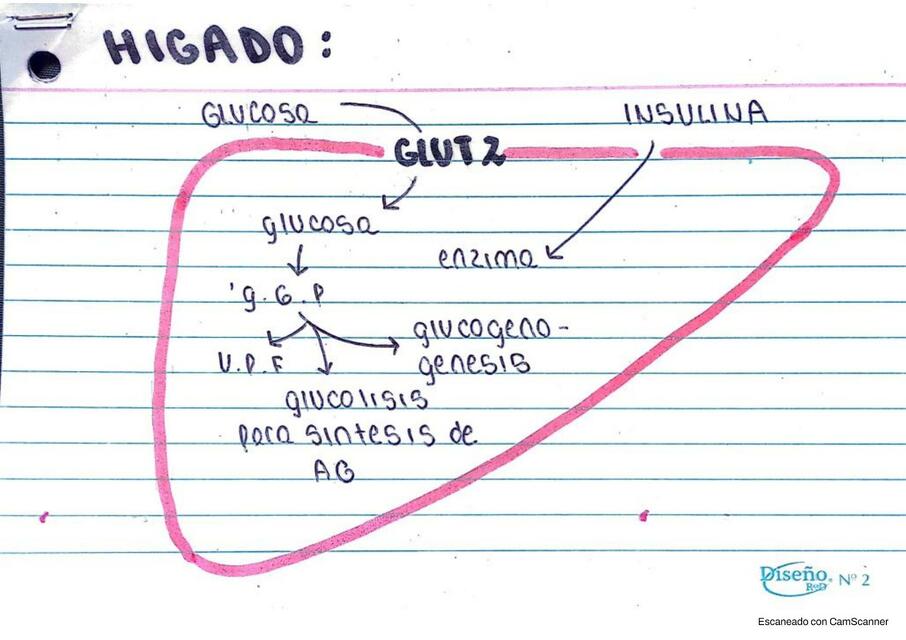 HIGADO:
GLUCOSA
INSULINA
GLUT2
glucosa
enzima
g.G.P
glucogeno-
V.P.F
genesis
glucolisis
para sintesis de
AG
Diseño RyD Nº 2
Escaneado con CamScanner